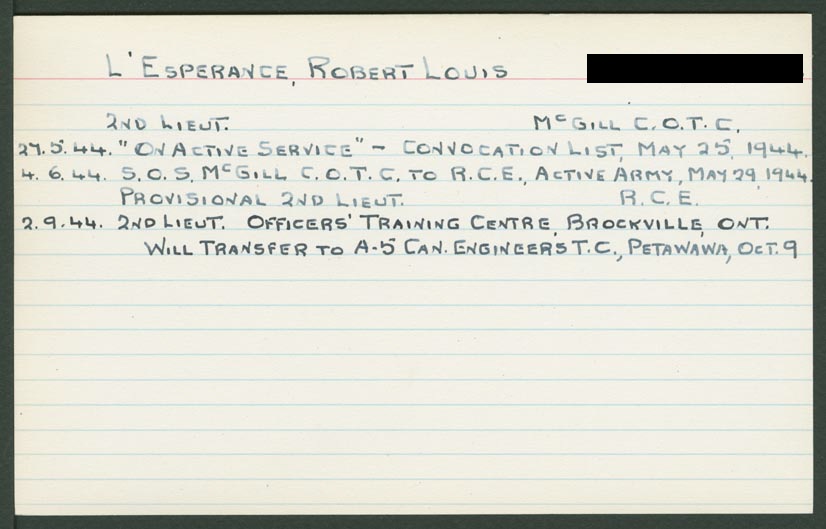 L'ESPERANCE, ROBERT LOUIS
2ND LIEUT. McGILL C.O.T.C.
27.5.44. "ON ACTIVE SERVICE" - CONVOCATION LIST, MAY 25, 1944.
4.6.44. S.O.S. McGILL C.O.T.C. TO R.C.E., ACTIVE ARMY, MAY 29, 1944.
PROVISIONAL 2ND LIEUT. R.C.E.
2.9.44. 2ND LIEUT. OFFICERS' TRAINING CENTRE, BROCKVILLE, ONT.
WILL TRANSFER TO A-5 CAN. ENGINEERS T.C., PETAWAWA, OCT. 9